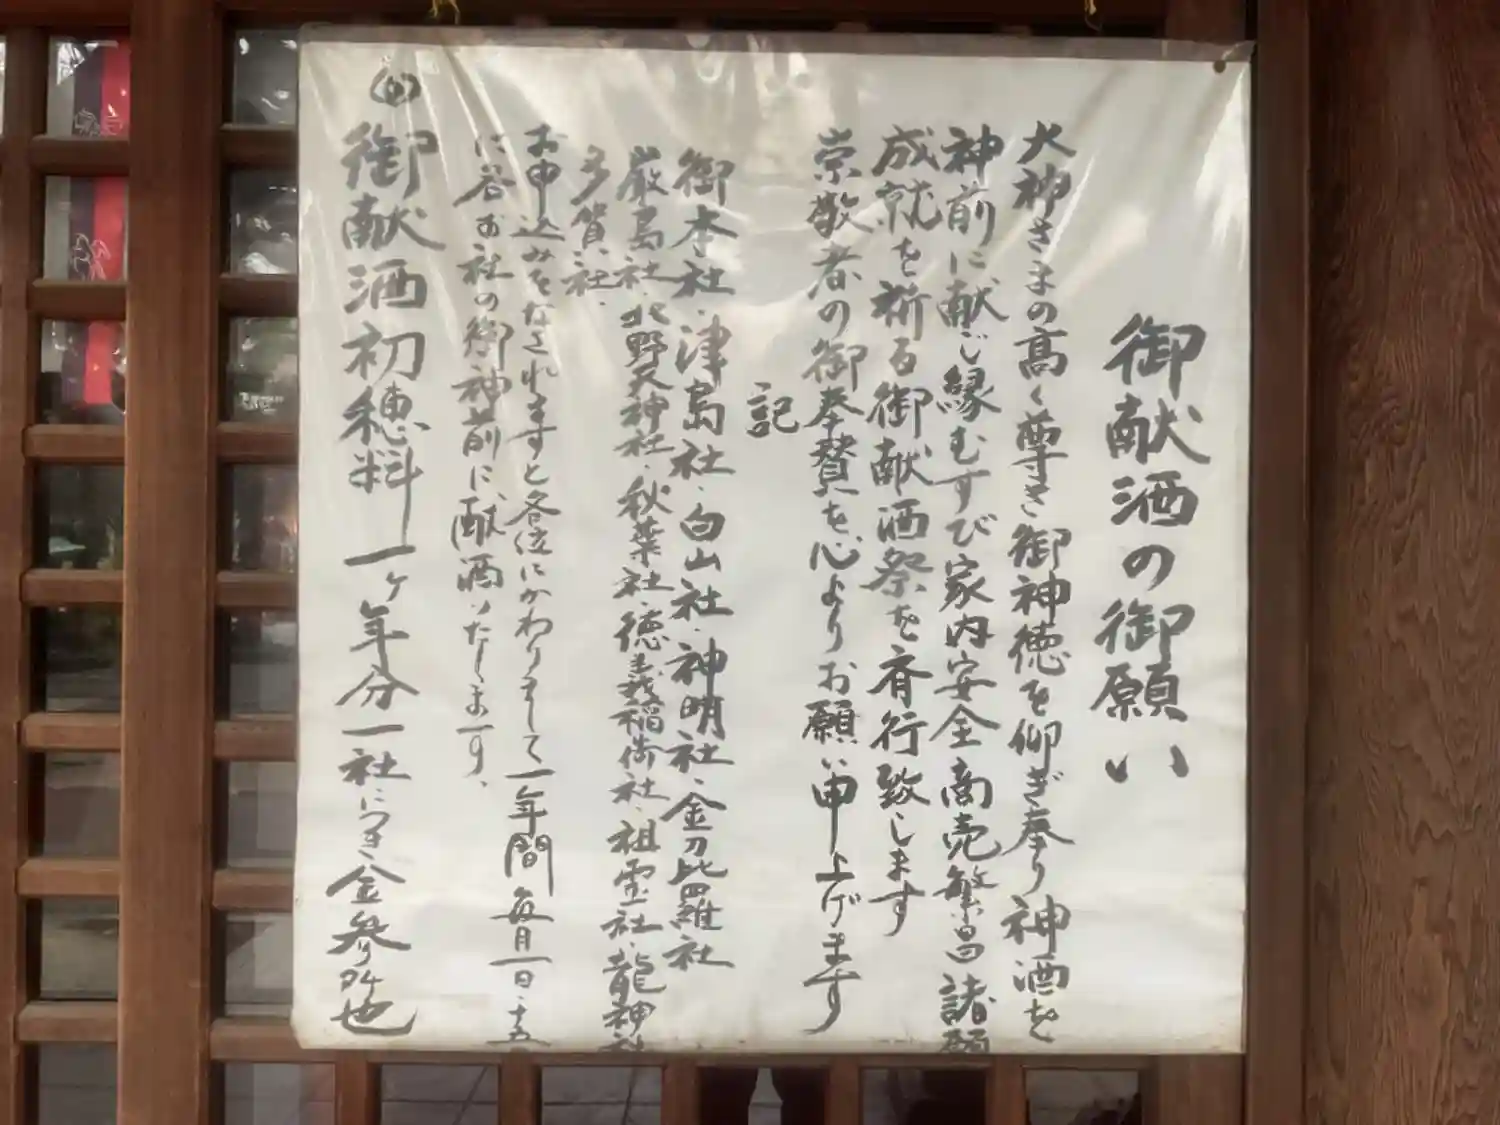 御献酒の御願い
大神さまの高く尊き御神徳を仰ぎ奉り神酒を
神前に献じ縁むすび家内安全商売繁昌諸願
成就を祈る御献酒祭を斉行致します
崇敬者の御奉賛を心よりお願い申上げます
記
御本社・津島社・白山社・神明社・金刀比羅社
厳島社・北野天神社・秋葉社・徳義稲荷社・祖霊社・龍神社
多賀社・
お申込みをなされますと各位にかわりまして一年間毎月一日・十五
に各お社の御神前に献酒いたします、
御献酒初穂料一ヶ年分一社につき金参阡也